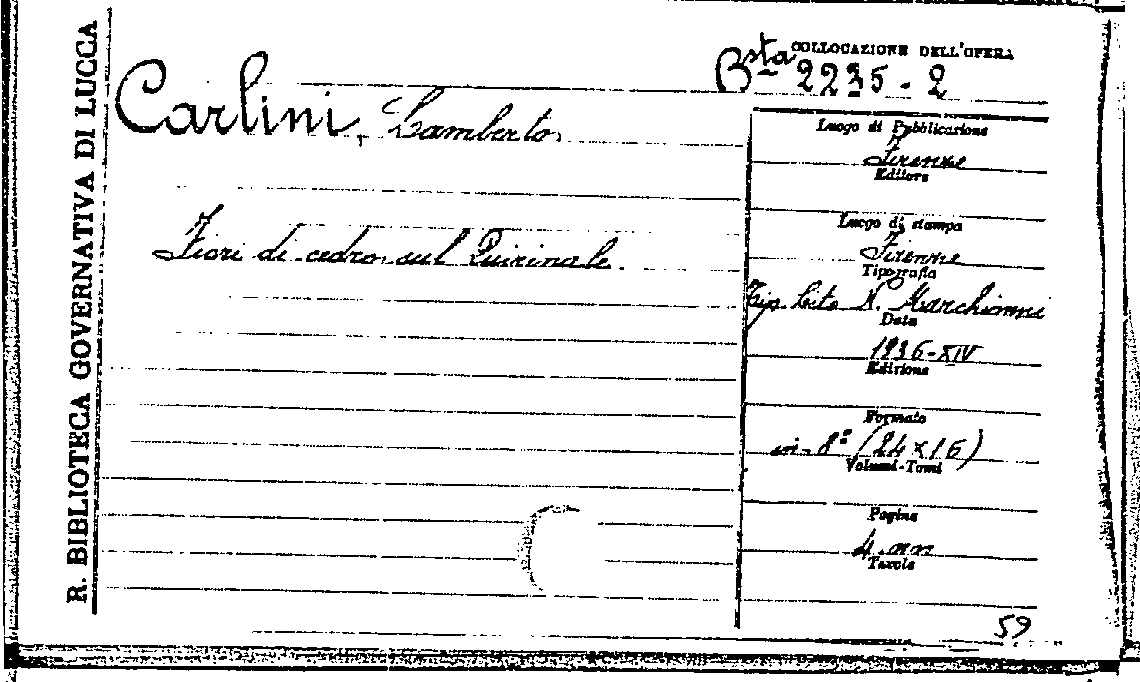 R. BIBLIOTECA GOVERNATIVA DI LUCCA
COLLOCAZIONE DELL'OPERA
Bsta 2235-2
Carlini, Lamberto
Fiori di cedro sul Quirinale
Luogo di Pubblicazione
Firenze
Editore
Luogo di stampa
Firenze
Tipografia
Tip. Lito N. Marchionni
Data
1936-XIV
Edizione
Formato
in-8º (24x16)
Volumi-Tomi
Pagine
4.nn
Tavole
59